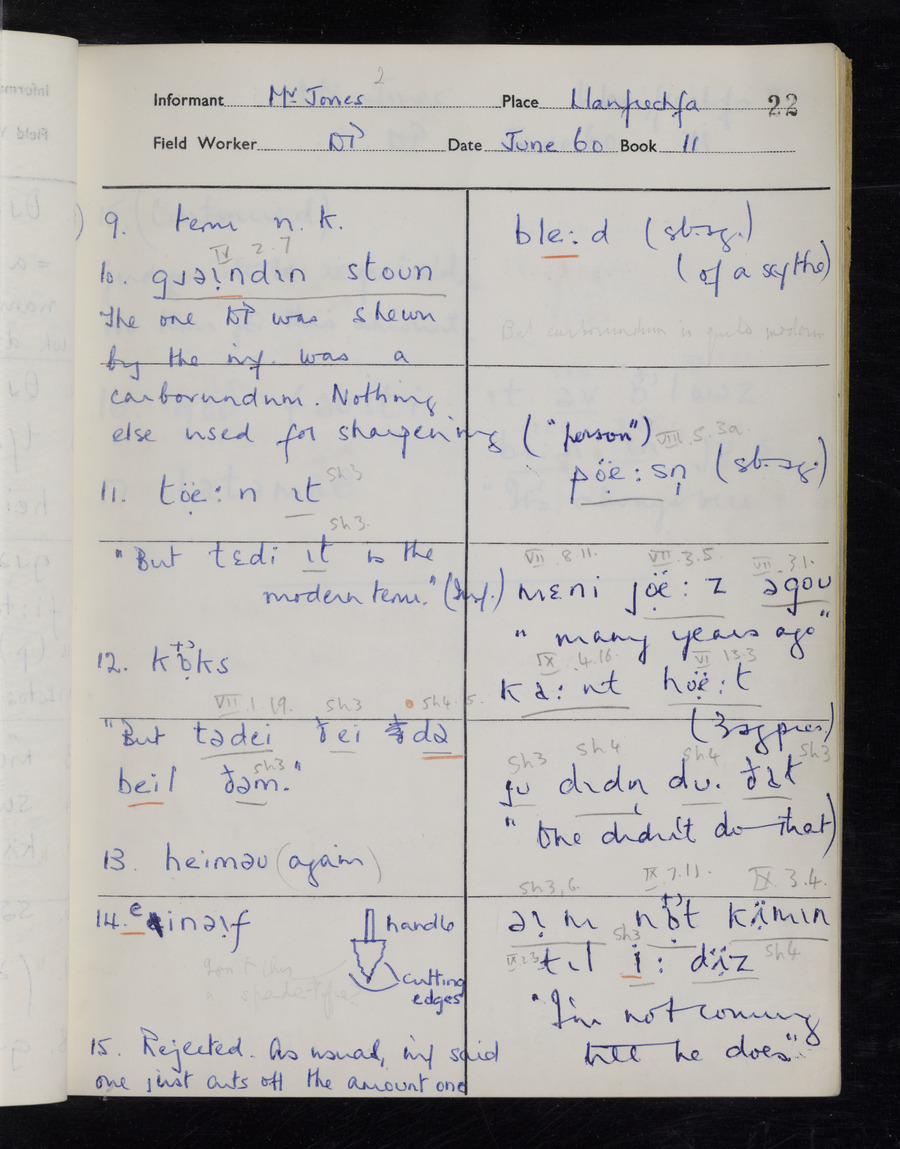 2
Informant Mr Jones Place Llanfrechfa 22
Field Worker DP Date June 60 Book 11
9. term n.k.
IV 2.7
10. gɹəịndɪn stoun
The one DP was shewn
by the inf. was a
carborundum. Nothing
else used for sharpening
11. tö̤ë: n ɪt sh3
sh3.
"But tɛdi ɪt is the
modern term." (Inf.)
12. kɒ̣ks
VII.1.19. sh3 sh4.5.
"But tədei ðei də
beil ðəm." sh3
13. heiməu (again)
14. einəịf
handle
cutting
edges
15. Rejected. As usual, inf said
one just cuts off the amount one
ble: d (sb.sg.)
(of a scythe)
But carborundum is quite modern
("person") VIII.5.3a.
pö̤ë: sn̩ (sb.sg.)
VII.8.11. VII.3.5. VII.3.1.
mɛni jö̤ë: z əgou
"many years ago"
IX.4.16. VI 13.3
ka: nt hö̤ë: t
(3 sg pres)
sh3 sh4 sh4 sh3
ju dɪdn̩ du. ðat
"One didn't do that)
sh3,6. IX.7.11. IX.3.4.
əị m nɒ̣t kämɪn
sh3
IX.2.3 tɪl i: däz sh4
"I'm not coming
till he does".